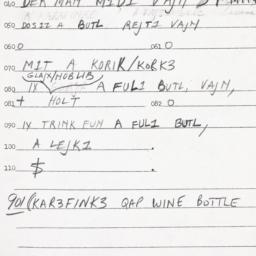 040 DER MAN MIDI VAJN
050 DOSIZ A BUTL REJTI VAJN
060 O 061 O
070 MIT A KORIK/KORK3
GLAJX/HOBLIB
080 IX A FUL1 BUTL, VAJN,
081 + HOLT 082 O
090 IX TRINK FUN A FUL1 BUTL,
100 A LEJK1 .
110 $ .
901 (KAR3FINK3 QAP WINE BOTTLE